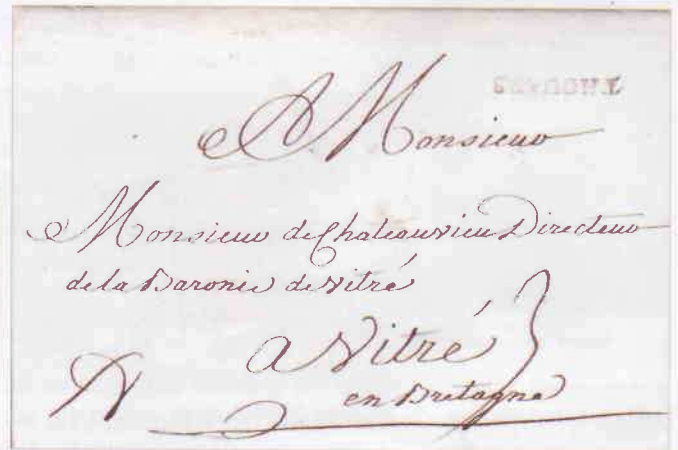 THOUARS
A Monsieur
Monsieur de Chateauvieu Directeur
de la Baronie de Vitré
a Vitré
en Bretagne